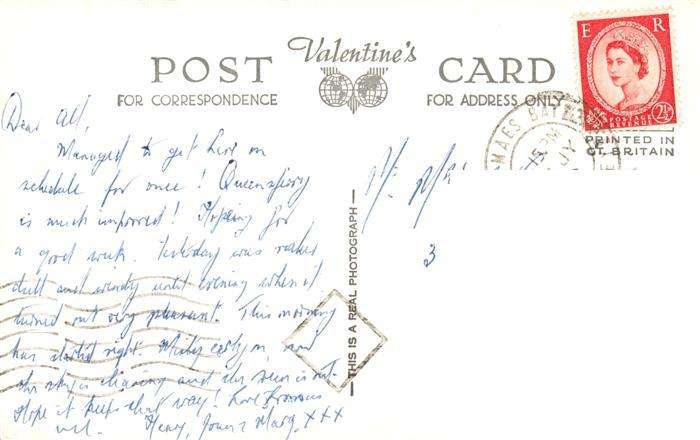 Valentine's
POST CARD
FOR CORRESPONDENCE
FOR ADDRESS ONLY
E R
POSTAGE REVENUE
2½
PRINTED IN
GT. BRITAIN
MAES BAY
15 PM
JY
Dear All,
Managed to get here on
schedule for once! Queensferry
is much improved! Hoping for
a good week. Yesterday was rather
dull and windy until evening when it
turned out very pleasant. This morning
has started right. Misty early on, and
the sky is clearing and the sun is out.
Hope it keeps that way! Love from us
all. Henry, & Marg. XXX
3
THIS IS A REAL PHOTOGRAPH